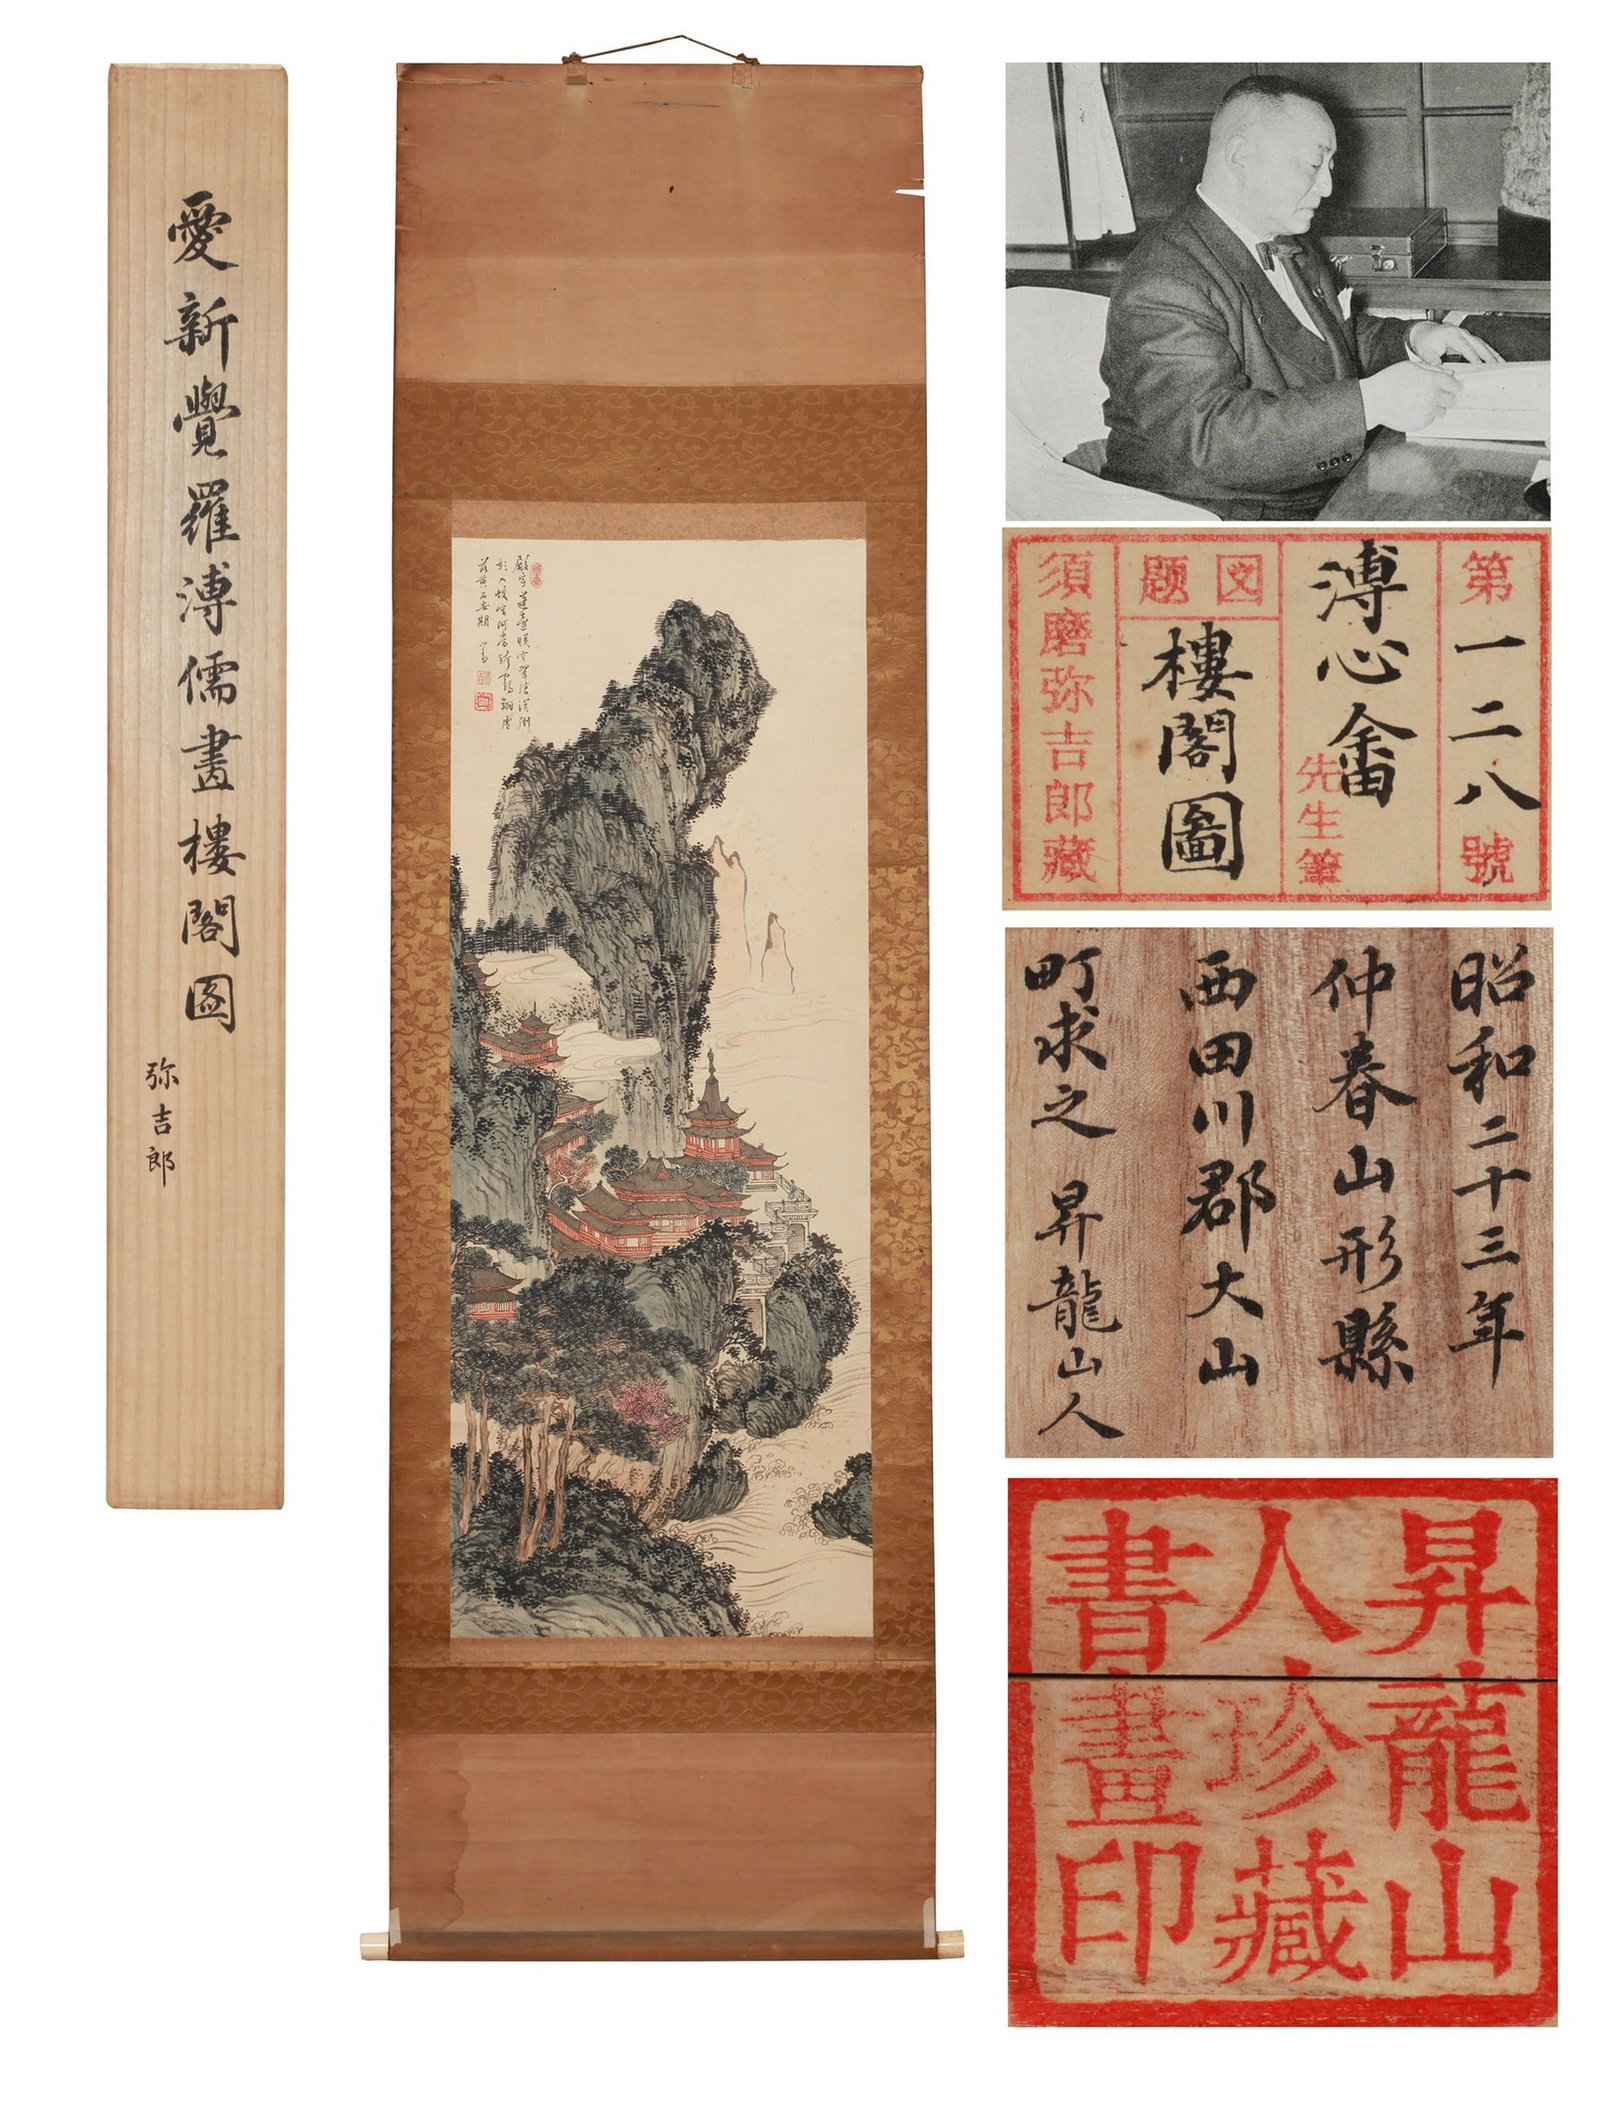 愛新覺羅溥儒畫樓閣圖
弥吉郎
第一二八號
溥心畬先生筆
図题
樓閣圖
須磨弥吉郎藏
昭和二十三年
仲春山形縣
西田川郡大山
町求之 昇龍山人
昇龍山
人珍藏
書畫印